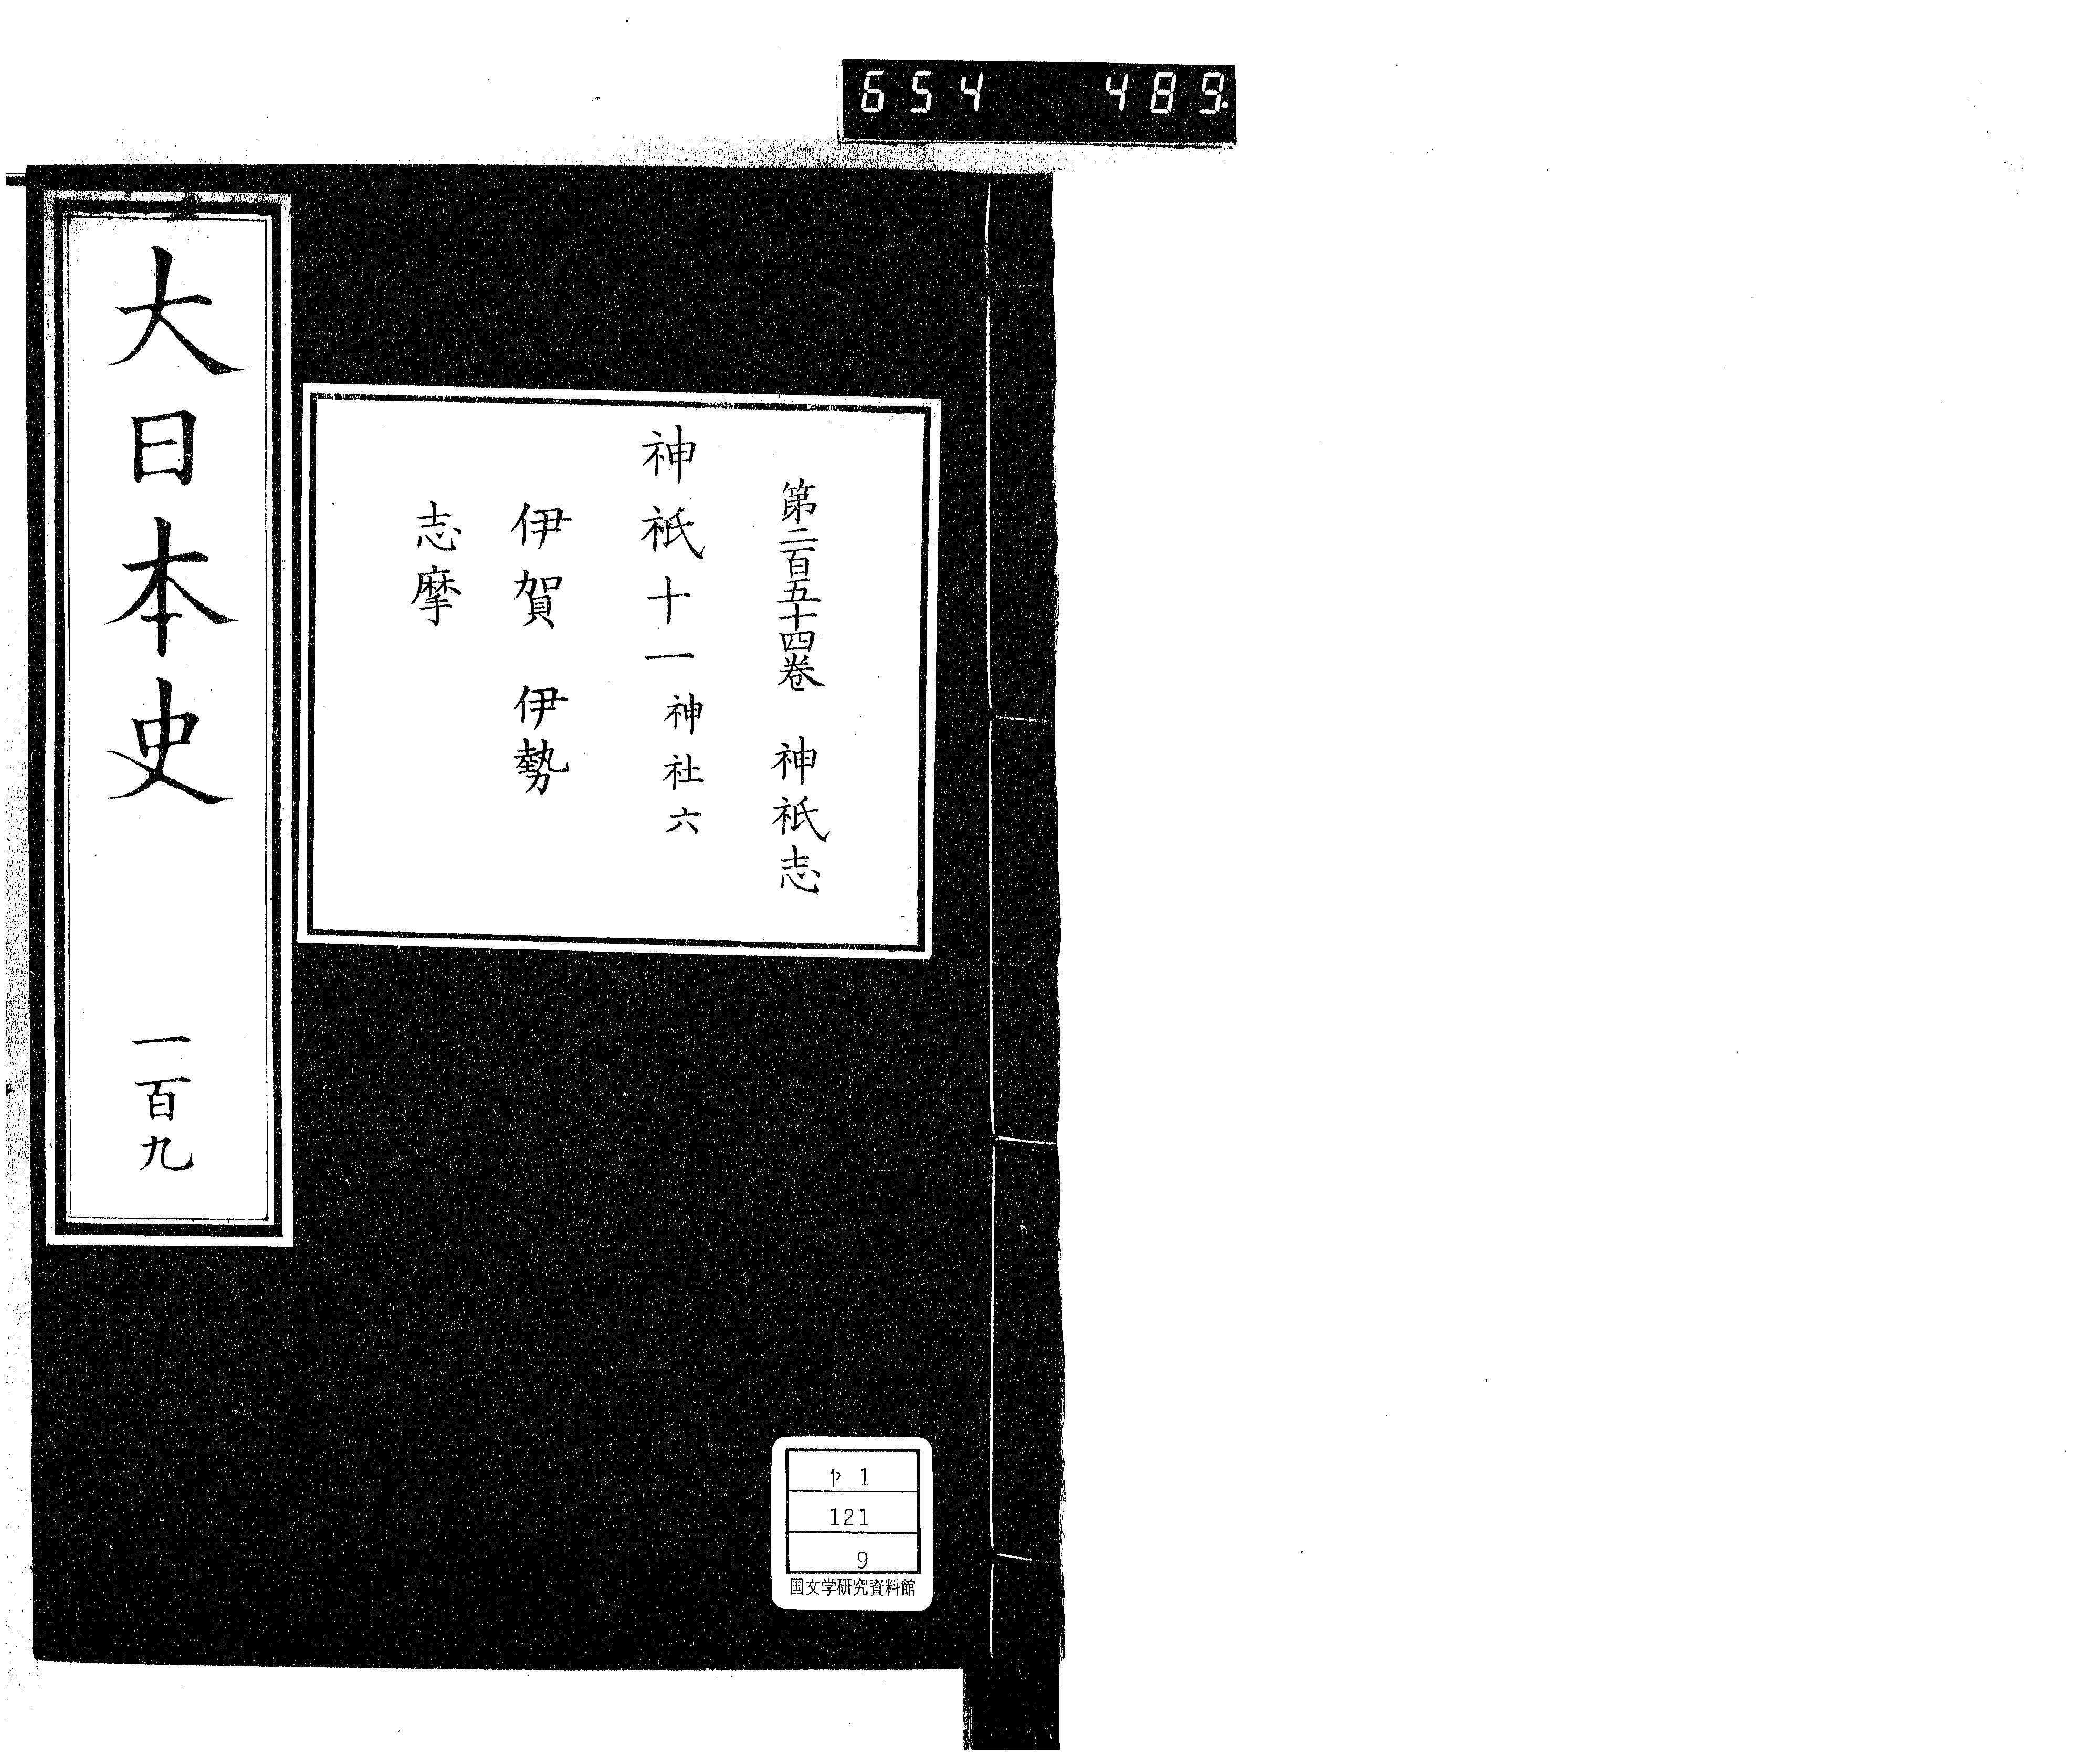 654 489.
大日本史 一百九
第二百五十四卷 神祇志
神祇十一 神社六
伊賀 伊勢
志摩
ヤ 1
121
9
国文学研究資料館